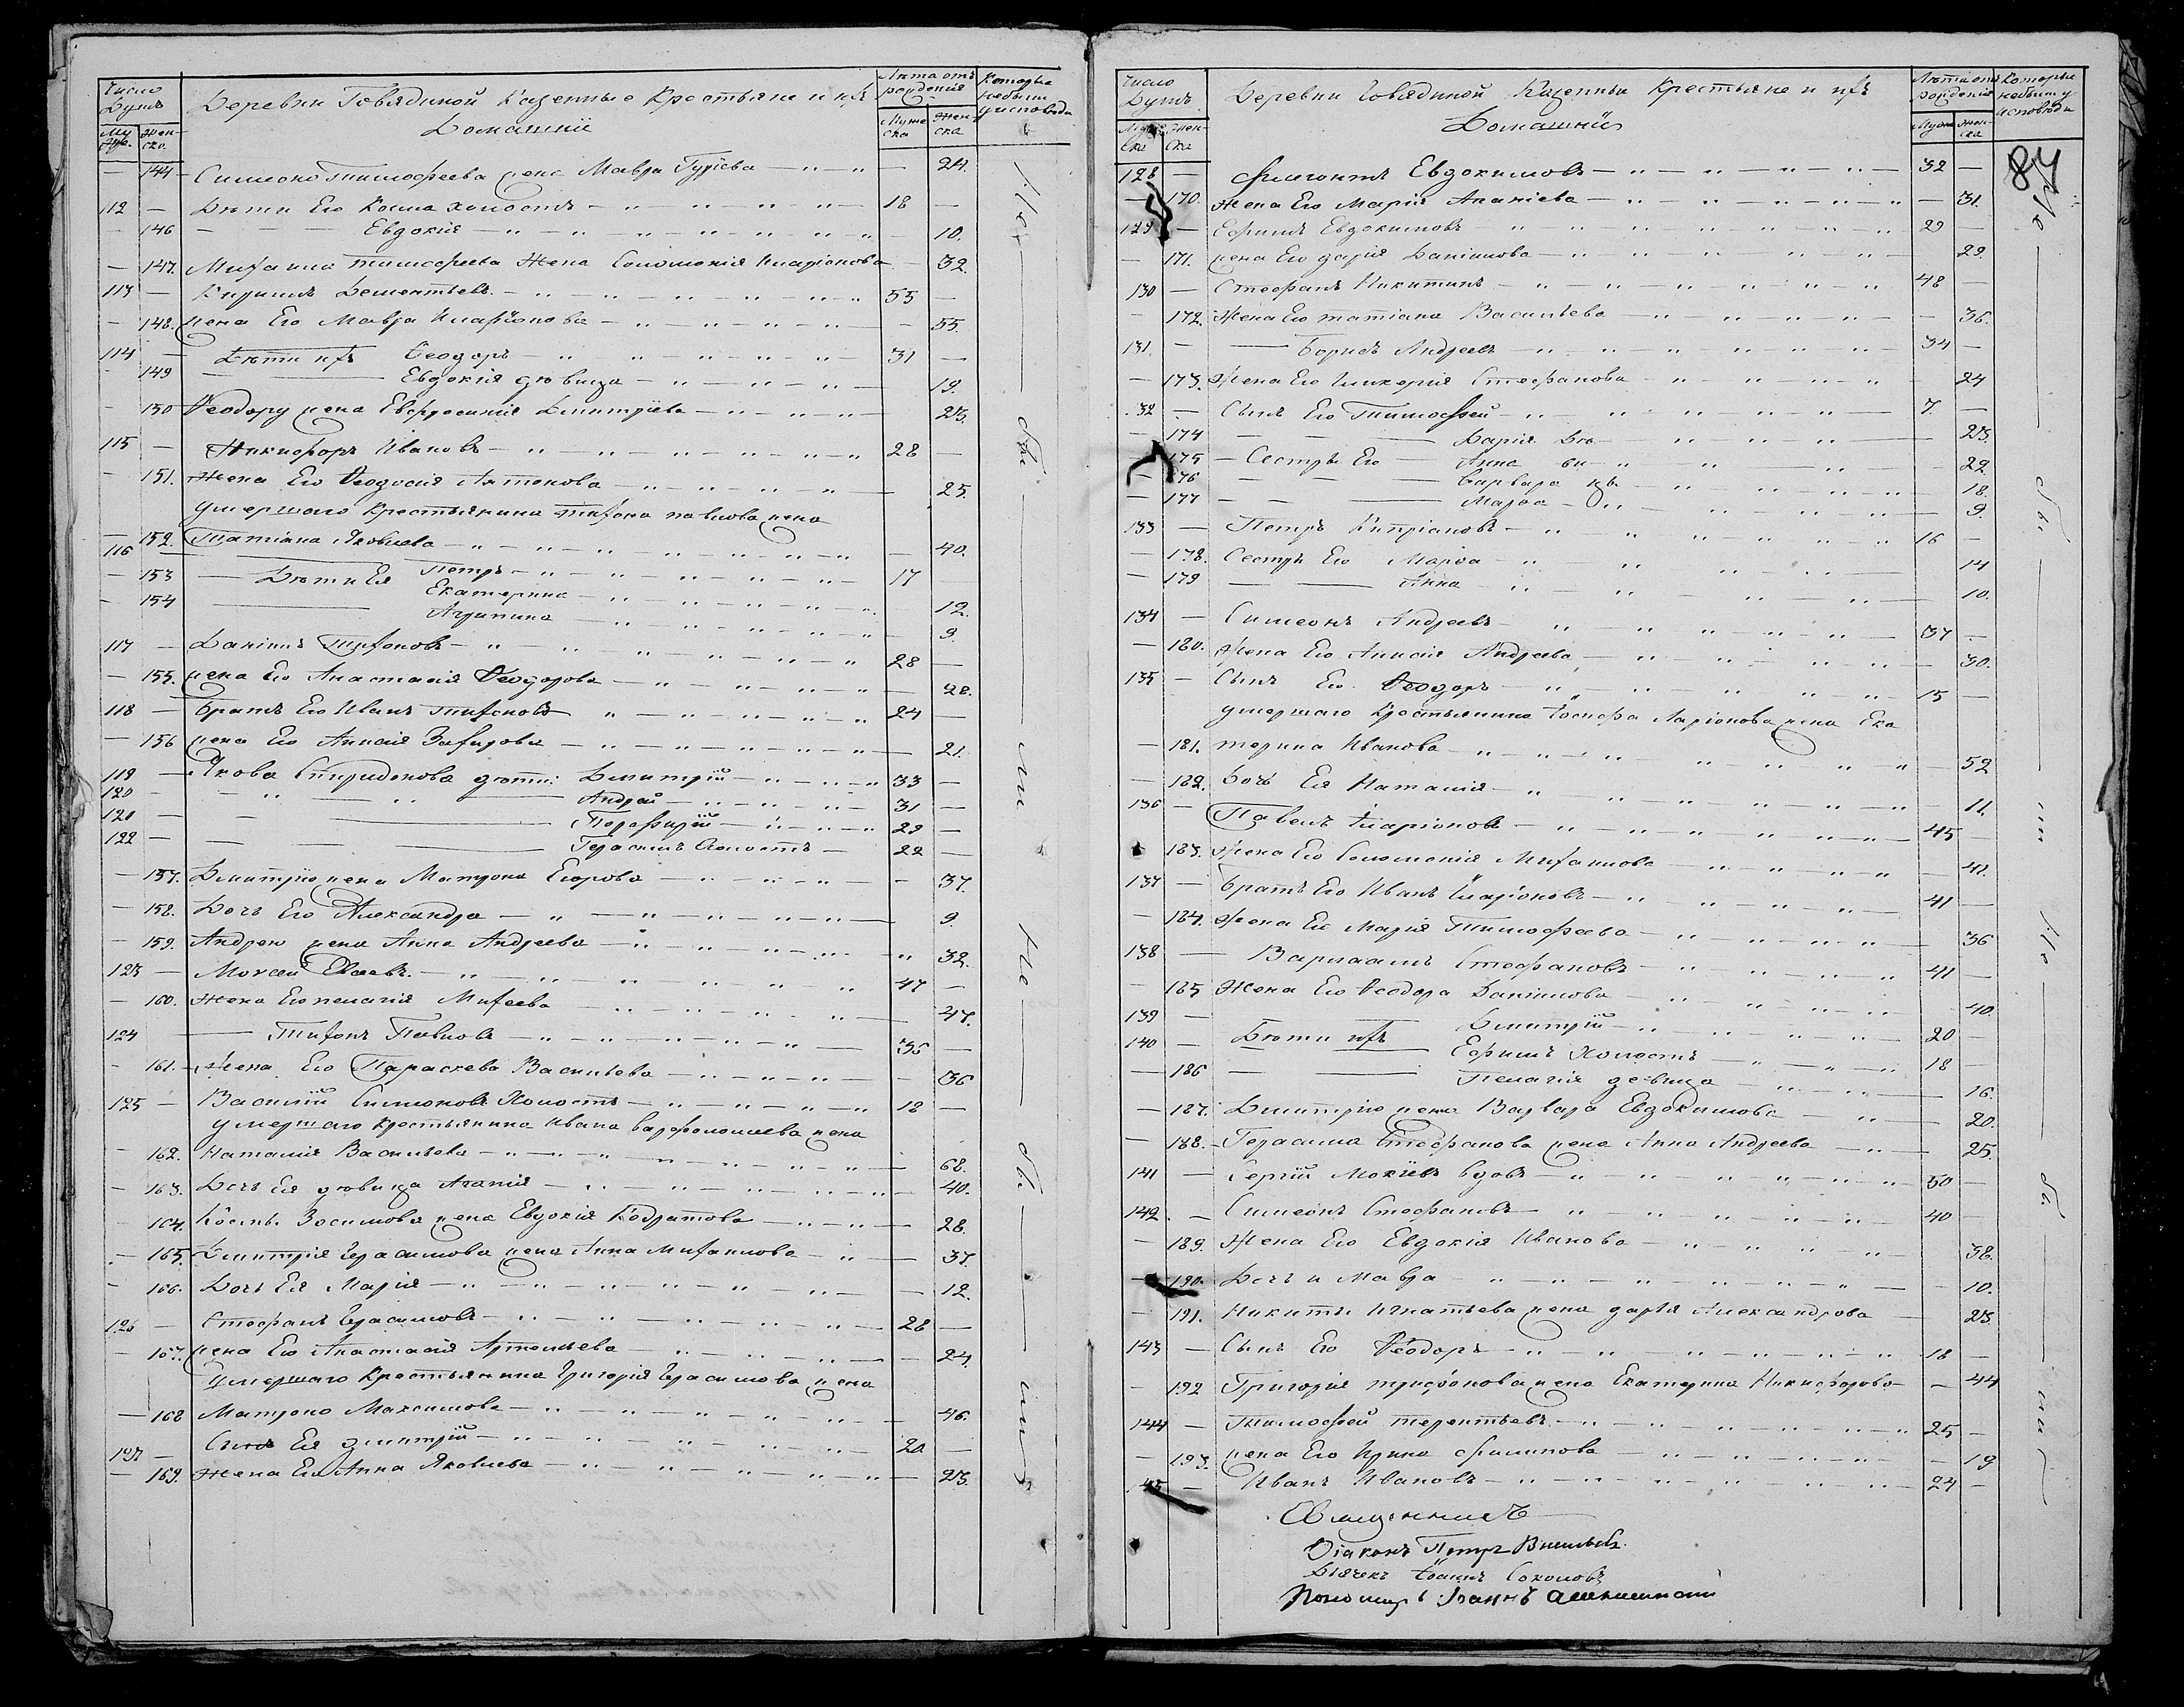 Число Душъ
Деревни Говядиной Казенные Крестьяне и ихъ
Домашнии
Лѣта отъ рожденія
Которые небыли уисповѣди
Муж. Жен-ска
Муже ска Жен-ска
— 144 Симеона Тимофеева жена Мавра Гуріева — 24.
112 — Дѣти Его Косма холостъ 18 —
— 146 Евдокія — 10.
— 147. Михаила Тимофеева Жена Соломонія Иларіонова — 32.
113 — Кирилъ Дементьевъ 55 —
— 148. жена Его Мавра Иларіонова — 55.
114 — Дѣти ихъ Ѳеодоръ 31 —
149 Евдокія дѣвица 19.
150 Ѳеодору жена Евфросинія Дмитріева 23.
115 — Никифоръ Ивановъ 28 —
— 151. Жена Его Ѳеодосія Антонова — 25.
умершаго Крестьянина Тихона павлова жена
— 152. Татіана Яковлева — 40.
116 Дѣти Ея Петръ 17
— 153 Екатерина 12.
— 154 Агрипина — 9.
117 — Даніилъ Тихоновъ 28 —
— 155. жена Его Анастасія Ѳеодорова — 28.
118 — Братъ Его Иванъ тихоновъ 24 —
— 156 жена Его Анисія Захарова — 21.
119 — Якова Спиридонова дѣти: Дмитрій 33 —
120 — Андрей 31 —
120 — Порфирій 29 —
122 — Герасимъ Холостъ 22 —
— 157. Дмитрію жена Матрона Егорова — 37.
— 158. Дочь Его Александра 9.
— 159. Андрею жена Анна Андреева 32.
123 — Моисей 47 —
— 160. Жена Его пелагія Михеева 47.
124 Тихонъ Павловъ 36 —
— 161. Жена Его Параскева Васильева — 36
125 — Василій Симеоновъ Холостъ 18 —
умершаго крестьянина Ивана варфоломеева жена
— 162. Наталія Васильева — 68.
— 163. Дочь Ея дѣвица Агапія — 40.
164. Зосимова жена Евдокія Кодратова — 28.
— 165. Дмитрія Герасимова жена Анна Михаилова — 37.
— 166. Дочь Ея Марія — 12.
126 — Стефанъ Герасимовъ 28 —
— 167. жена Его Анастасія Артемьева — 24.
умершаго Крестьянина Григорія Герасимова жена
— 168 Матрона Максимова — 46.
127 — Сынъ Ея дмитрій 20 —
— 169. Жена Его Анна Яковлева — 23.
Не бы ли Не бы ли
Число Душъ
Деревни Говядиной Казенные Крестьяне и ихъ
Домашнии
Лѣта отъ рожденія
Которые небыли у исповѣди
Муже ска Жен-ска
Муже Жен-ска
84
128 — Флегонтъ Евдокимовъ 32 —
— 170. Жена Его Марія Ананіева — 31.
129 — Ефимъ Евдокимовъ 29 —
— 171. жена Его дарія Даніилова 29.
130 — Стефанъ Никитинъ 48 —
— 172. Жена Его татіана Васильева — 36.
131. — Борисъ Андреевъ 34 —
— 173. Жена Его Гликерія Стефанова — 24
132 — Сынъ Его Тимофей 7. —
— 174 Дарія дѣ- 23.
— 175 Сестры Его Анна ви- 22.
— 176 варвара цы 18.
— 177 Марѳа 9.
133 — Петръ Кипріановъ 16 —
— 178. Сестры Его Марѳа 14
— 179 Анна 10.
134 — Симеонъ Андреевъ 37 —
— 180. Жена Его Анисія Андреева 30.
135 — Сынъ Его Ѳеодоръ 15 —
умершаго Крестьянина Іосифа Ларіонова жена Ека
— 181. терина Иванова — 52
— 182. Дочь Ея Наталія — 11.
136 — Павелъ Иларіоновъ 45 —
183. Жена Его Соломонія Михаилова — 42.
137 — Братъ Его Иванъ Иларіоновъ 41 —
— 184. Жена Его Марія Тимофеева 36
138 — Варлаамъ Стефановъ 41 —
— 185 Жена Его Ѳеодора Даніилова 40
139 — Дѣти ихъ Дмитрій 20 —
140 — Ефимъ Холостъ 18 —
— 186 Пелагія девица 16.
— 187. Дмитрію жена Варвара Евдокимова 20.
— 188. Герасима Стефанова жена Анна Андреева 25.
141 — Сергій Мокіевъ вдовъ 50 —
142. — Симеонъ Стефановъ 40
— 189. Жена Его Евдокія Иванова 38.
— 190. Дочь и Мавра — 10.
— 191. Никиты Игнатьева жена дарія Александрова 23.
143 — Сынъ Его Ѳеодоръ 18 —
— 192 Григорія трифонова жена Екатерина Никифорова — 44
144 — Тимофей терентьевъ 25 —
— 193. жена Его Ирина Филипова — 19
145 — Иванъ Ивановъ 24 —
Не бы ли Не бы ли
Священникъ
Діаконъ Петръ Васильевъ.
Дьячекъ Іоаннъ Соколовъ
Пономарь Іоаннъ